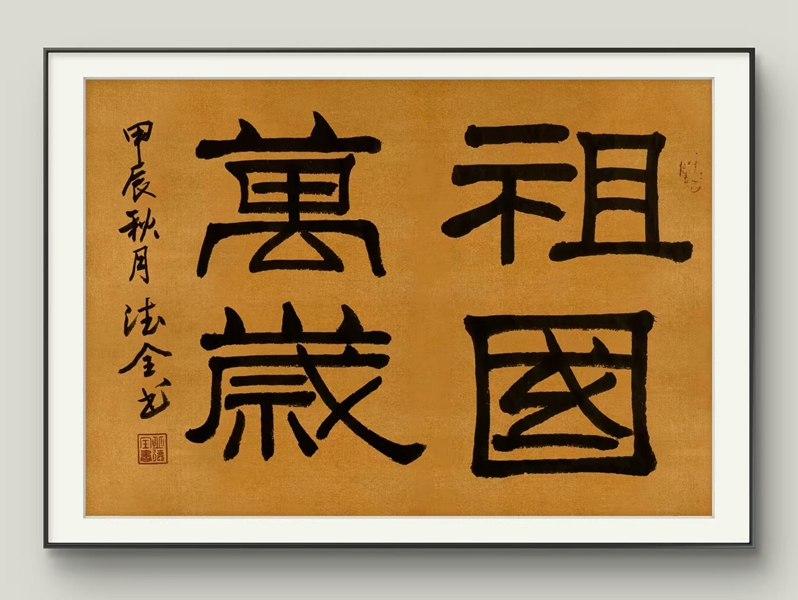 祖國
萬歲
甲辰秋月 法全书